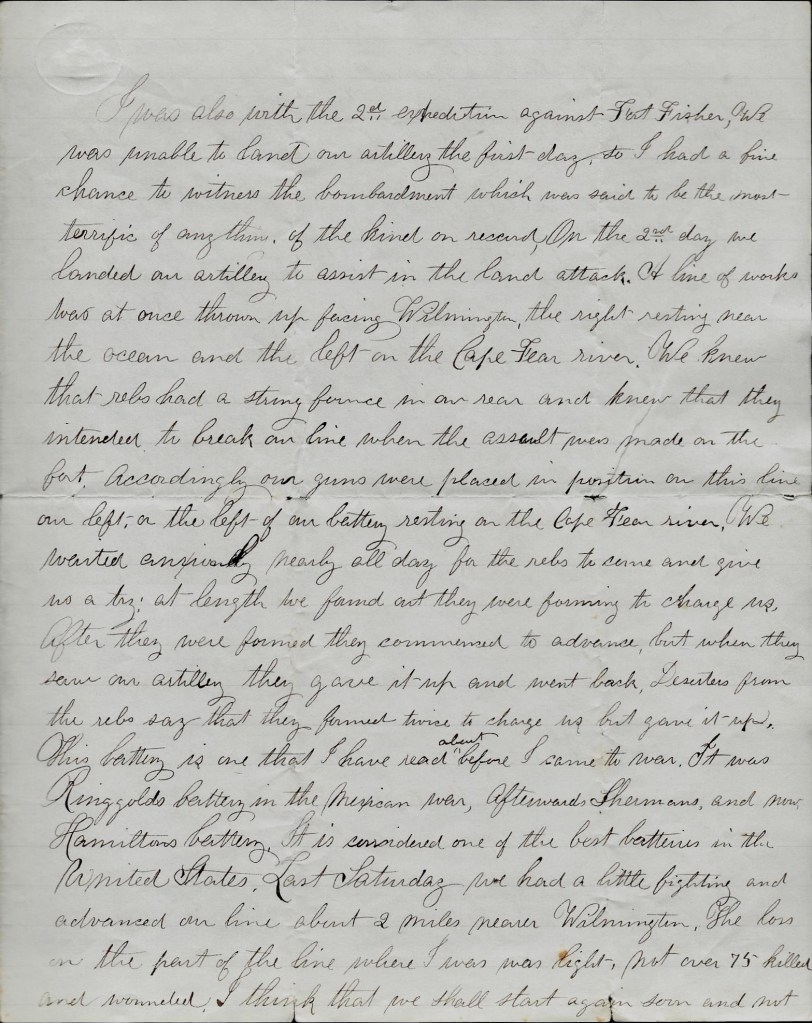 I was also with the 2nd expedition against Fort Fisher, We
was unable to land our artillery the first day, so I had a fine
chance to witness the bombardment which was said to be the most
terrific of anything of the kind on record, On the 2nd day we
landed our artillery to assist in the land attack. A line of works
was at once thrown up facing Wilmington, the right resting near
the ocean and the left on the Cape Fear river. We knew
that rebs had a strong foruce in our rear and knew that they
intended to break our line when the assault was made on the
fort. Accordingly our guns were placed in position on this line
our left, or the left of our battery resting on the Cape Fear river, We
waited anxiously nearly all day for the rebs to come and give
us a try; at length we found out they were forming to charge us.
After they were formed they commenced to advance, but when they
saw our artillery they gave it up and went back, Deserters from
the rebs say that they formed twice to charge us but gave it up.
This battery is one that I have read about before I came to war. It was
Ringgolds battery in the Mexican war, Afterwards Shermans, and now
Hamiltons battery. It is considered one of the best batteries in the
United States, Last Saturday we had a little fighting and
advanced our line about 2 miles nearer Wilmington, The loss
on the part of the line where I was was light, not over 75 killed
and wounded, I think that we shall start again soon and not